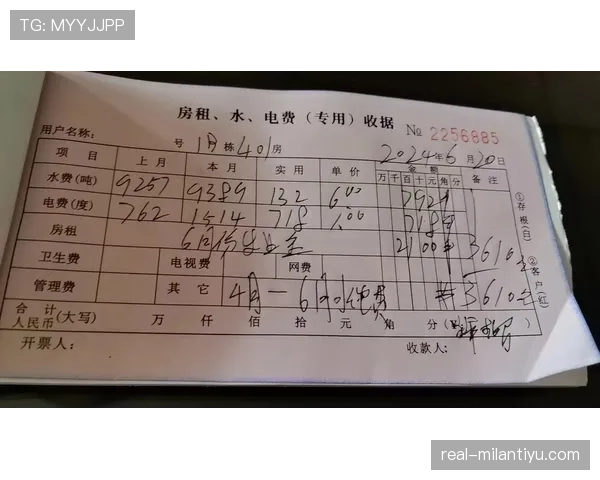 TG: MYYJJPP
房租、水、电费（专用）收据 № 2256885
用户名称： 号 1 栋 401 房 2024 年 6 月 20 日
项目 上月 本月 实用 单价 金额 备注
万 千 百 十 元 角 分
水费(吨) 9257 9389 132 6.00 792
电费(度) 762 1514 718 1.00 718
房租 6月份 2100 3610
卫生费 电视费 网费
管理费 其它 4月—6月水电费 3610
合计人民币(大写) 万 仟 佰 拾 元 角 分
开票人： 收款人：
①存根(白) ②客户(红)
real-milantiyu.com